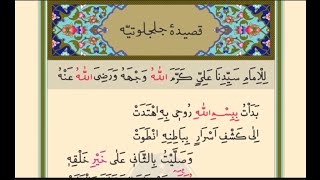 قصيدۀ جلجلوتيه
لِلْاِمَامِ سَيِّدِنَا عَلِيٍّ كَرَّمَ اللّٰهُ وَجْهَهُ وَرَضِىَ اللّٰهُ عَنْهُ
بَدَأْتُ بِبِسْمِ اللّٰهِ رُوحِى بِهِ اهْتَدَتْ
اِلٰى كَشْفِ اَسْرَارٍ بِبَاطِنِهِ انْطَوَتْ
وَصَلَّيْتُ بِالثَّانِى عَلٰى خَيْرِ خَلْقِهِ